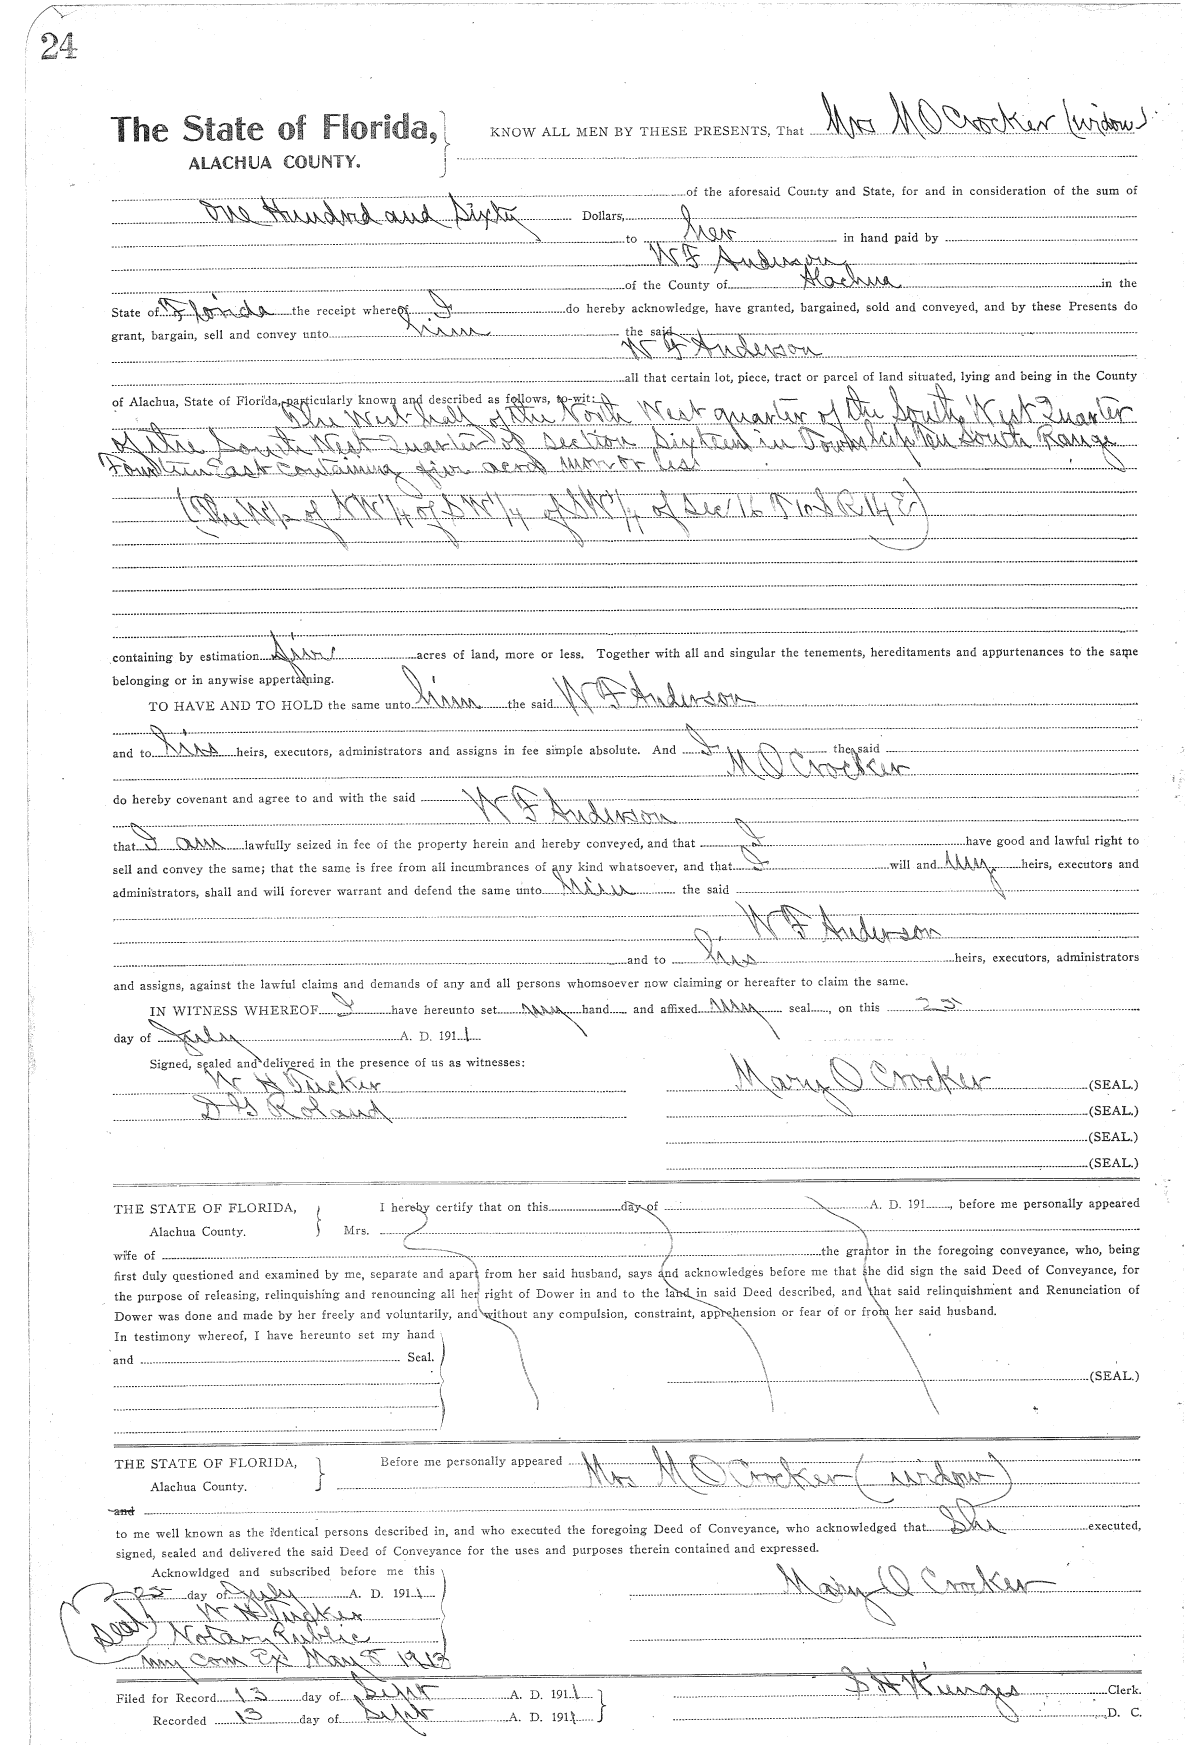 24
The State of Florida, KNOW ALL MEN BY THESE PRESENTS, That Mrs M O Crocker (widow)
ALACHUA COUNTY.
of the aforesaid County and State, for and in consideration of the sum of
One Hundred and Sixty Dollars,
to her in hand paid by
W F Anderson
of the County of Alachua in the
State of Florida the receipt whereof I do hereby acknowledge, have granted, bargained, sold and conveyed, and by these Presents do
grant, bargain, sell and convey unto him the said
W F Anderson
all that certain lot, piece, tract or parcel of land situated, lying and being in the County
of Alachua, State of Florida, particularly known and described as follows, to-wit:
The West half of the North West quarter of the South West Quarter
of the South West Quarter of Section Sixteen in Township Ten South Range
Fourteen East containing five acres more or less
(The W½ of NW¼ of SW¼ of SW¼ of Sec 16 T 10 S R 14 E)
containing by estimation five acres of land, more or less. Together with all and singular the tenements, hereditaments and appurtenances to the same
belonging or in anywise appertaining.
TO HAVE AND TO HOLD the same unto him the said W F Anderson
and to his heirs, executors, administrators and assigns in fee simple absolute. And I the said
M O Crocker
do hereby covenant and agree to and with the said
W F Anderson
that I am lawfully seized in fee of the property herein and hereby conveyed, and that I have good and lawful right to
sell and convey the same; that the same is free from all incumbrances of any kind whatsoever, and that I will and my heirs, executors and
administrators, shall and will forever warrant and defend the same unto him the said
W F Anderson
and to his heirs, executors, administrators
and assigns, against the lawful claims and demands of any and all persons whomsoever now claiming or hereafter to claim the same.
IN WITNESS WHEREOF I have hereunto set my hand and affixed my seal, on this 25
day of July A. D. 1911
Signed, sealed and delivered in the presence of us as witnesses:
W H Tucker Mary O Crocker (SEAL.)
D G Roland (SEAL.)
(SEAL.)
(SEAL.)
THE STATE OF FLORIDA, I hereby certify that on this day of A. D. 191 , before me personally appeared
Alachua County. Mrs.
wife of the grantor in the foregoing conveyance, who, being
first duly questioned and examined by me, separate and apart from her said husband, says and acknowledges before me that she did sign the said Deed of Conveyance, for
the purpose of releasing, relinquishing and renouncing all her right of Dower in and to the land in said Deed described, and that said relinquishment and Renunciation of
Dower was done and made by her freely and voluntarily, and without any compulsion, constraint, apprehension or fear of or from her said husband.
In testimony whereof, I have hereunto set my hand
and Seal.
(SEAL.)
THE STATE OF FLORIDA, Before me personally appeared Mrs M O Crocker (widow)
Alachua County.
and
to me well known as the identical persons described in, and who executed the foregoing Deed of Conveyance, who acknowledged that She executed,
signed, sealed and delivered the said Deed of Conveyance for the uses and purposes therein contained and expressed.
Acknowldged and subscribed before me this
25 day of July A. D. 1911 Mary O Crocker
W H Tucker
(Seal) Notary Public
my Com Ex May 8 1913
Filed for Record 13 day of Sept A. D. 1911 S H Wienges Clerk.
Recorded 13 day of Sept A. D. 1911 D. C.